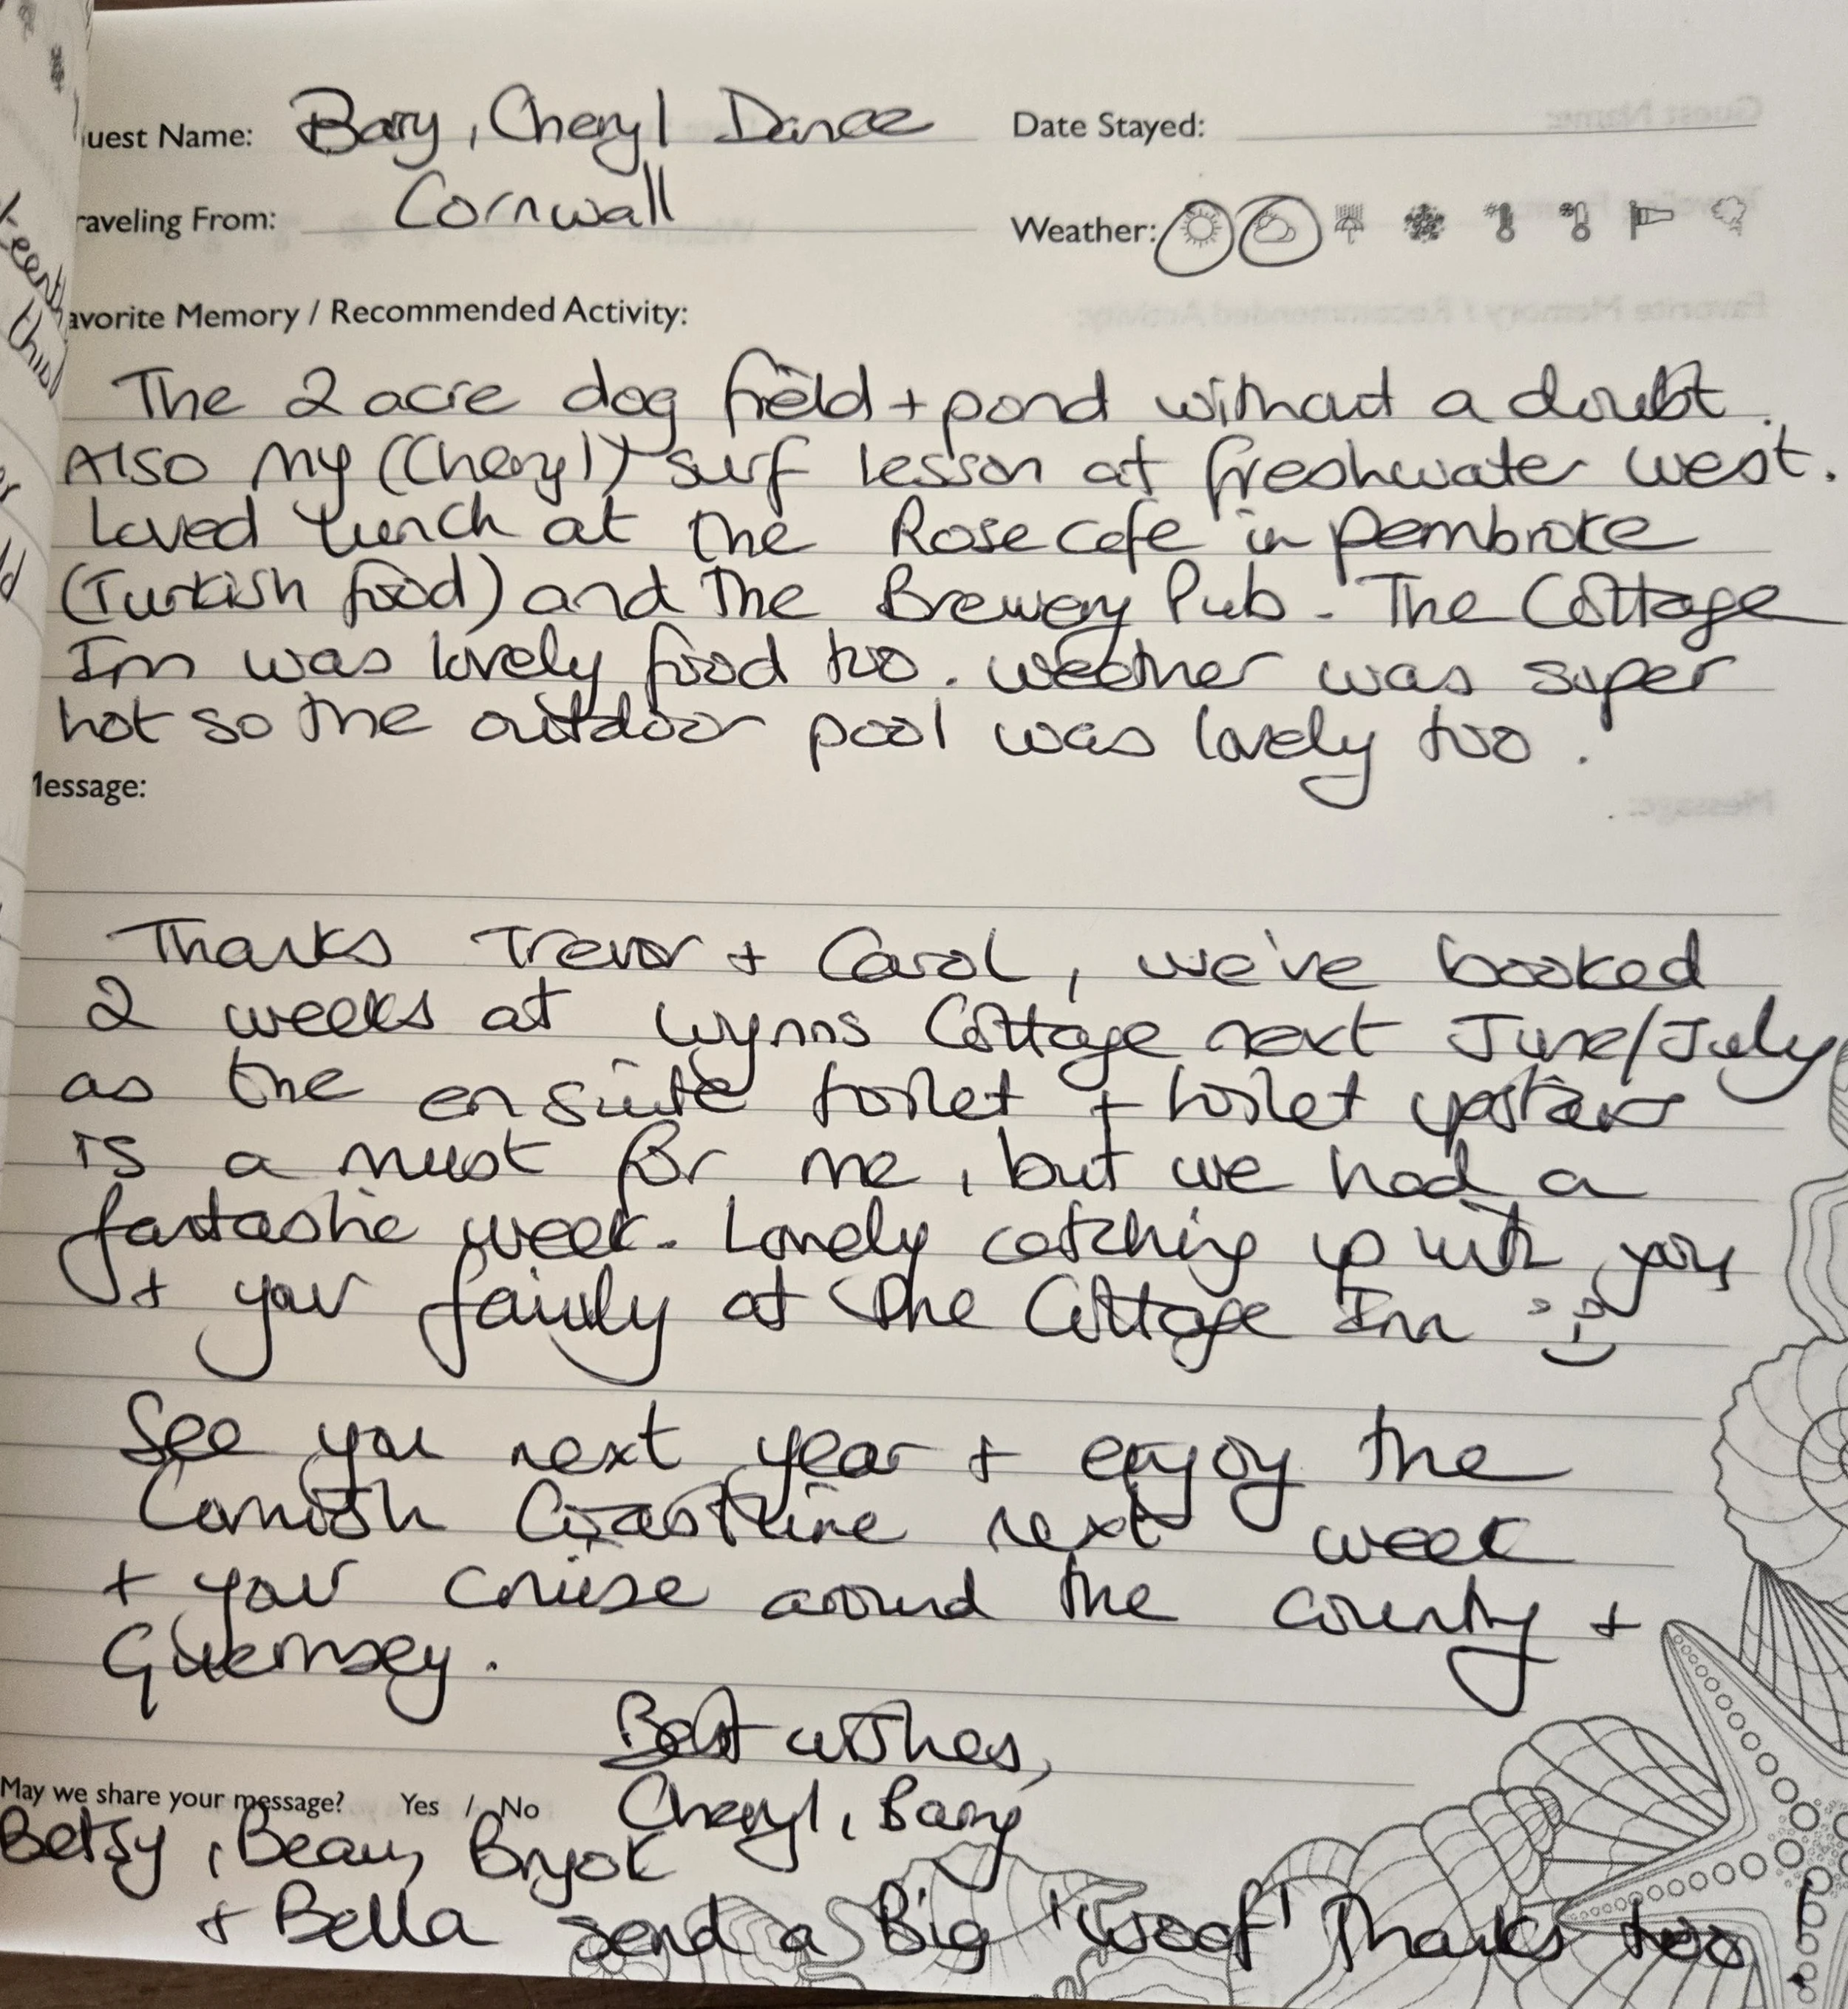 uest Name: Barry, Cheryl Dance
Date Stayed:
raveling From: Cornwall
Weather:
avorite Memory / Recommended Activity:
The 2 acre dog field + pond without a doubt.
Also my (Cheryl) surf lesson at freshwater west.
Loved lunch at the Rose cafe in pembroke
(Turkish food) and The Brewery Pub. The Cottage
Inn was lovely food too. weather was super
hot so the outdoor pool was lovely too.
Message:
Thanks Trevor + Carol, we've booked
2 weeks at Wynns Cottage next June/July
as the en suite toilet + toilet upstairs
is a must for me, but we had a
fantastic week. Lovely catching up with you
+ your family at The Cottage Inn
See you next year + enjoy the
Cornish Coastline next week
+ your cruise around the county +
Guernsey.
Best wishes,
Cheryl, Barry
May we share your message? Yes / No
Betsy, Beau,
+ Bella send a Big 'Woof' Thanks too!